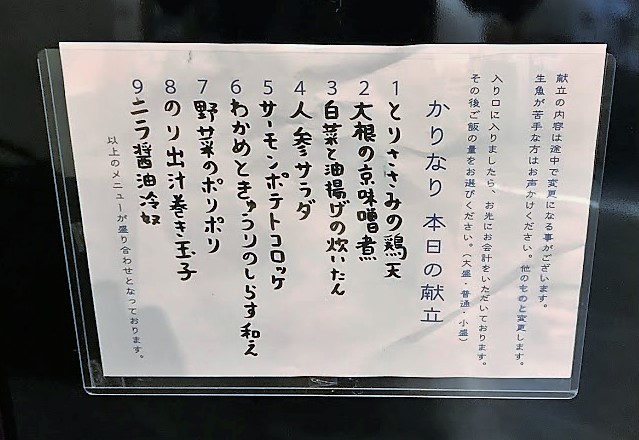 献立の内容は途中で変更になる事がございます。
生魚が苦手な方はお声かけください。他のものと変更します。
入り口に入りましたら、お先にお会計をいただいております。
その後ご飯の量をお選びください。（大盛・普通・小盛）
かりなり 本日の献立
1 とりささみの鶏天
2 大根の京味噌煮
3 白菜と油揚げの炊いたん
4 人参サラダ
5 サーモンポテトコロッケ
6 わかめときゅうりのしらす和え
7 野菜のポリポリ
8 のり出汁巻き玉子
9 ニラ醤油冷奴
以上のメニューが盛り合わせとなっております。